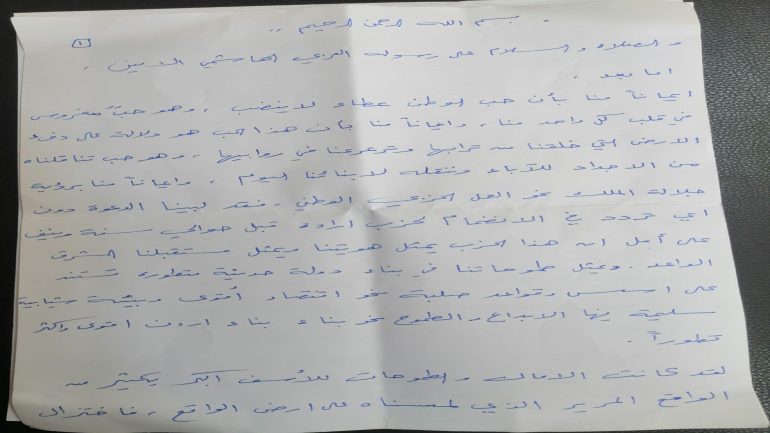 بسم الله الرحمن الرحيم ..
١
و الصلاة و السلام على رسوله العربي الهاشمي الامين .
اما بعد .
ايماناً منا بأن حب الوطن عطاء لا ينضب ، وهو حب مغروس
في قلب كل واحد منا ، وايماناً منا بأن هذا الحب هو دلالة على دفء
الارض التي خلقنا من ترابها وترعرعنا في روابيها ، وهو حب تناقلناه
من الاجداد للآباء وننقله لابنائنا اليوم ، وايماناً منا برؤية
جلالة الملك نحو العمل الحزبي الوطني ، فقد لبينا الدعوة دون
اي تردد في الانضمام لحزب ارادة قبل حوالي سنة ونيف
على أمل ان هذا الحزب يمثل هويتنا ويمثل مستقبلنا المشرق
الواعد . ويمثل طموحاتنا في بناء دولة حديثة متطورة تستند
على اسس وقواعد صلبة نحو اقتصاد أقوى وبيئة شبابية
سليمة بها الابداع والطموح نحو بناء بناء اردن اقوى واكثر
تطوراً .
لقد كانت الامال والطموحات للأسف اكبر بكثير من
الواقع المرير الذي لمسناه على ارض الواقع ، فاختزال